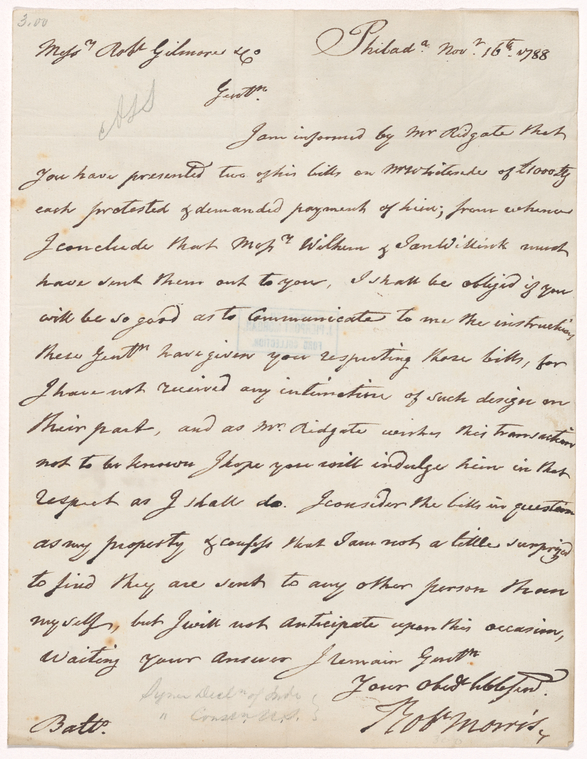 3.00
Messrs Robt Gilmore & Co
Philada Novr 16th 1788
ALS
Gentn
I am informed by Mr Ridgate that
You have presented two of his bills on Mr Whiteside of £1000 Stg
each protested & demanded payment of him; from whence
I conclude that Messrs Wilhem & Jan Willink must
have sent them out to you, I shall be obliged if you
will be so good as to Communicate to me the instructions
these Gentn have given you respecting those bills, for
I have not received any intimation of such design on
their part, and as Mr. Ridgate wishes this transaction
not to be known I hope you will indulge him in that
respect as I shall do. I consider the bills in question
as my property & confess that I am not a little surprized
to find they are sent to any other person than
myself, but I will not anticipate upon this occasion,
Waiting your answer I remain Gentn
Your Obedt hble Servt
Signer Decln of Inde
" Constn U.S.
Robt Morris
Balto.